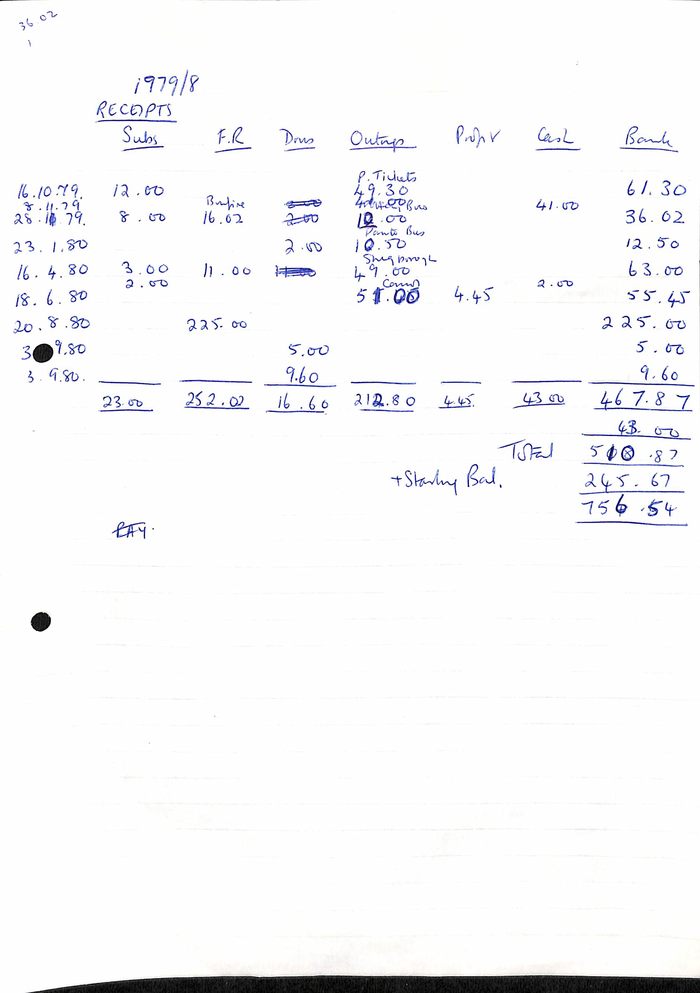 36 02
1
1979/8
RECEIPTS
Subs F.R Dons Outings Profit Cash Bank
P. Tickets
16.10.79. 12.00 49.30 61.30
8.11.79 Bonfire 41.00
28.11.79. 8.00 16.02 2.00 12.00 36.02
Bus
23.1.80 2.00 10.50 12.50
16.4.80 3.00 11.00 49.00 63.00
2.00 2.00
18.6.80 51.00 4.45 55.45
20.8.80 225.00 225.00
3 9.80 5.00 5.00
3.9.80. 9.60 9.60
23.00 252.02 16.60 212.80 4.45 43.00 467.87
43.00
Total 510.87
+Starting Bal. 245.67
756.54
PAY.